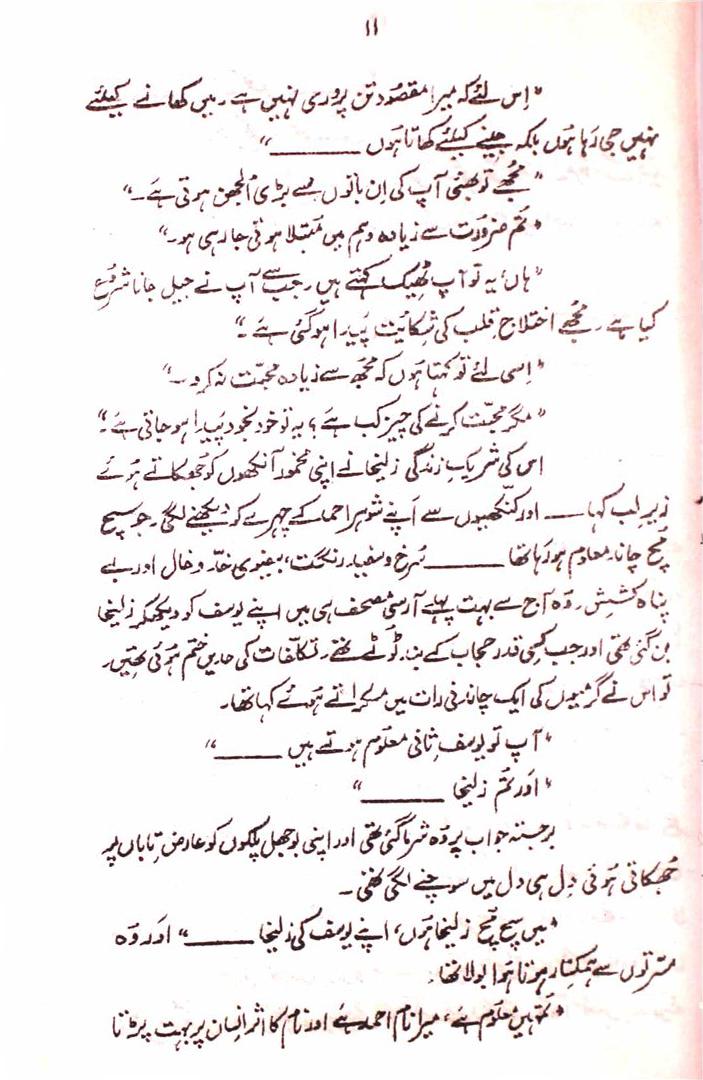 ۱۱
"اِس لئے کہ میرا مقصود تن پروری نہیں ہے۔ میں کھانے کیلئے
نہیں جی رہا ہوں بلکہ جینے کیلئے کھاتا ہوں ــــــــ"
"مجھے تو بھئی آپ کی اِن باتوں سے بڑی اُلجھن ہوتی ہے۔"
"تم ضرورت سے زیادہ وہم میں مُبتلا ہوتی جا رہی ہو۔"
"ہاں یہ تو آپ ٹھیک کہتے ہیں۔ جب سے آپ نے جیل جانا شروع
کیا ہے۔ مجھے اختلاجِ قلب کی شکایت پیدا ہو گئی ہے۔"
"اسی لئے تو کہتا ہوں کہ مجھ سے زیادہ محبّت نہ کرو۔"
"مگر محبّت کرنے کی چیز کب ہے؟ یہ تو خود بخود پیدا ہو جاتی ہے۔"
اس کی شریکِ زندگی زلیخا نے اپنی مخمور آنکھوں کو جھکاتے ہوئے
زیرِ لب کہا ــــــ اور کنکھیوں سے اَپنے شوہر احمد کے چہرے کو دیکھنے لگی۔ جو سچ
مچ چاند معلوم ہو رہا تھا ــــــــ سُرخ و سفید رنگت، بیضوی خدّ و خال اور بے
پناہ کشِش۔ وہ آج سے بہت پہلے آرسی مصحف ہی میں اپنے یوسف کو دیکھکر زلیخا
بن گئی تھی اور جب کسی قدر حجاب کے بند ٹوٹے تھے۔ تکلّفات کی حدیں ختم ہوئی تھیں۔
تو اس نے گرمیوں کی ایک چاندنی رات میں مسکراتے ہوئے کہا تھا۔
"آپ تو یوسفِ ثانی معلوم ہوتے ہیں ــــــــ"
"اور تم زلیخا ــــــــ"
برجستہ جواب پر وہ شرما گئی تھی اور اپنی بوجھل پلکوں کو عارضِ تاباں پر
جھکاتی ہوئی دِل ہی دل میں سوچنے لگی تھی۔
"میں سچ مچ زلیخا ہوں، اپنے یوسف کی زلیخا ــــــــ" اور وہ
مسرّتوں سے ہمکنار ہوتا ہوا بولا تھا۔
"تمہیں معلوم ہے، میرا نام احمد ہے اور نام کا اثر انسان پر بہت پڑتا